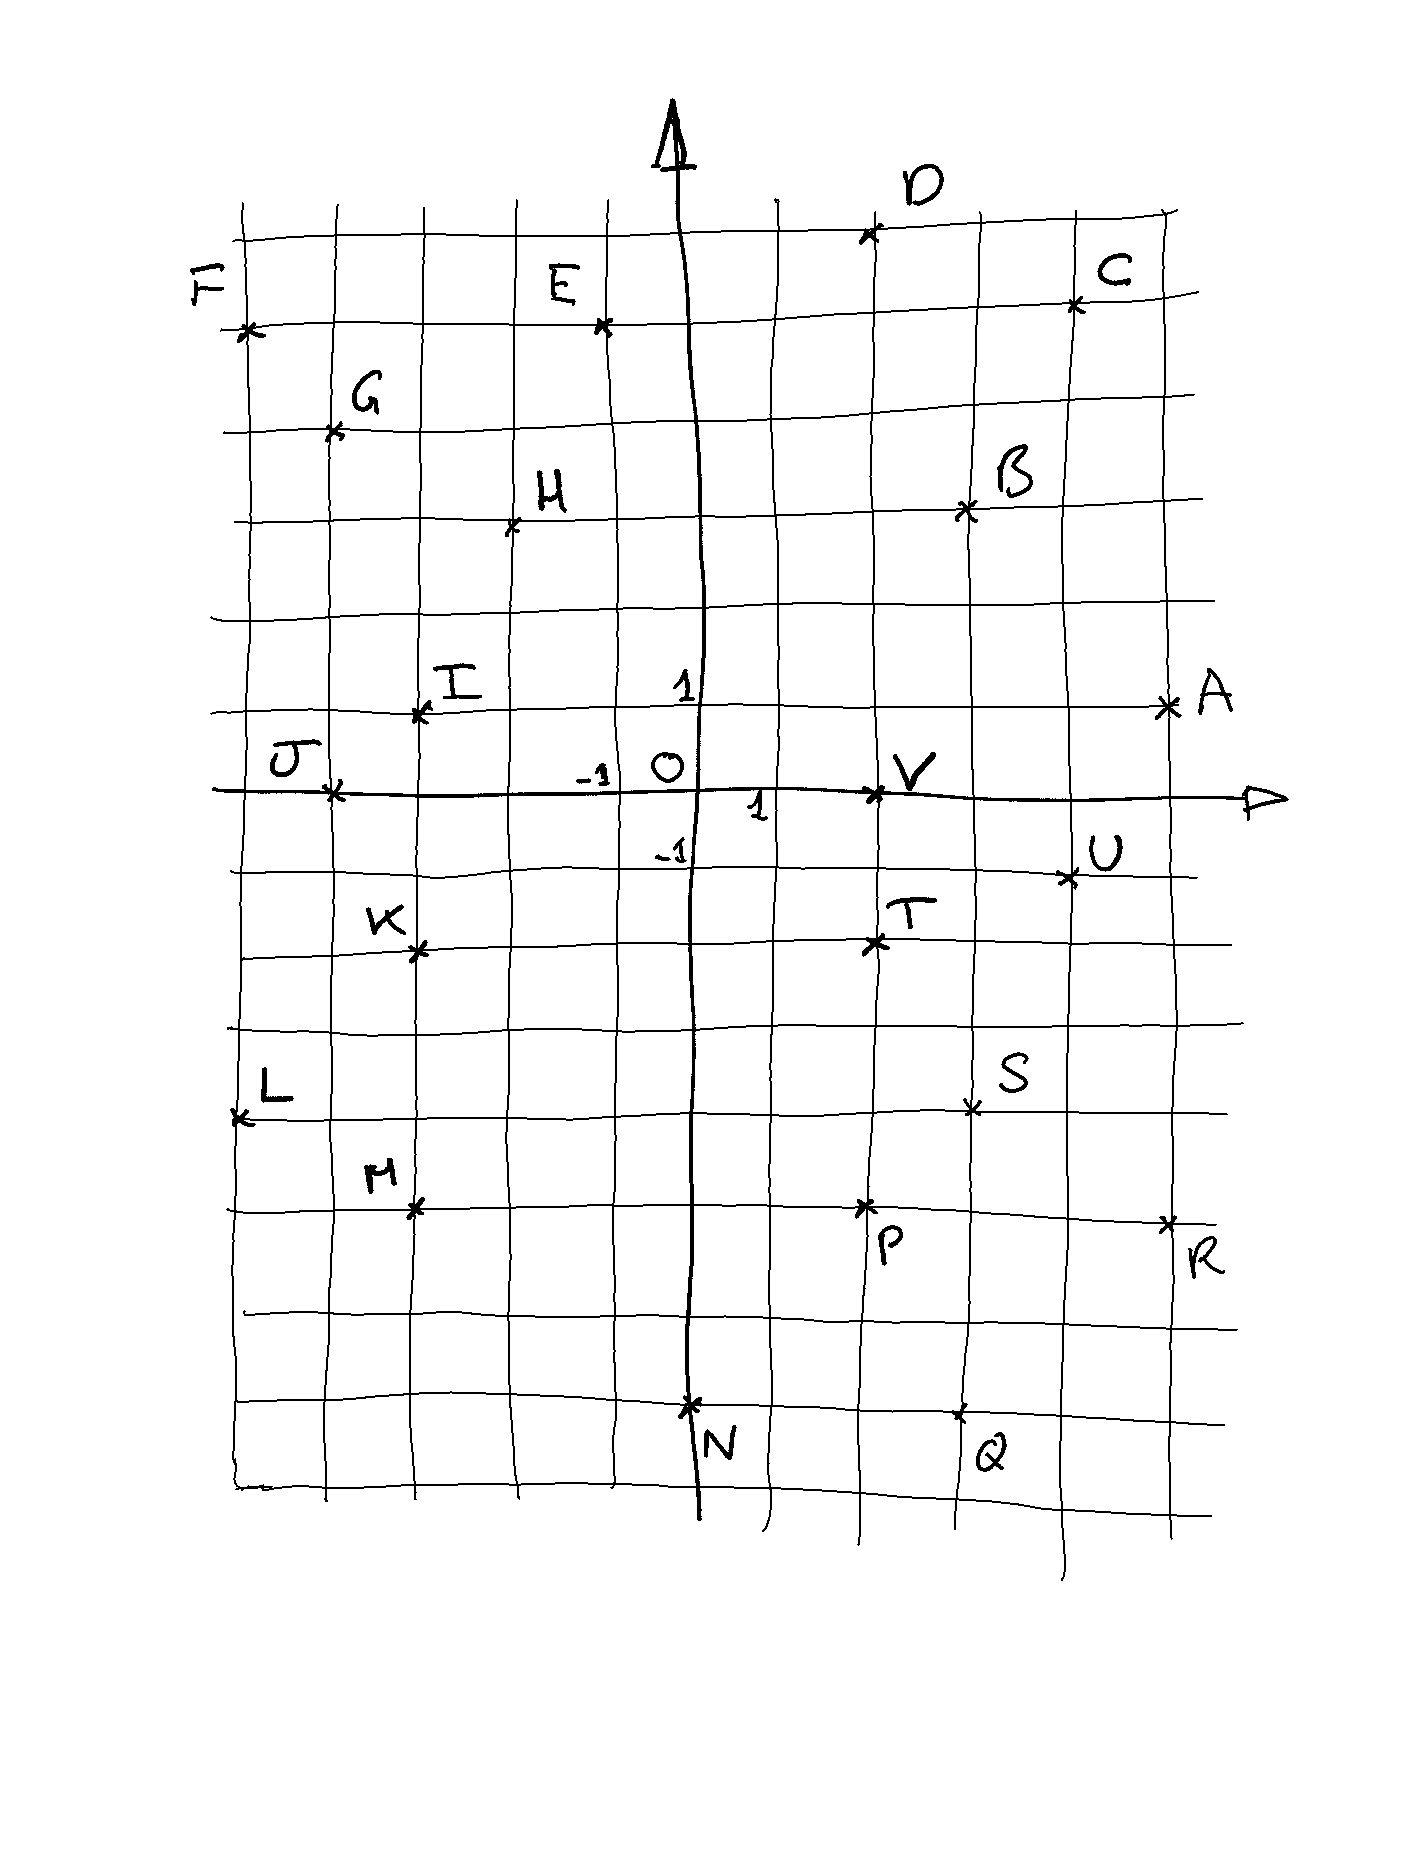 D
F E C
G
H B
I 1 A
J -1 O 1 V
-1 U
K T
L S
M
P R
N Q